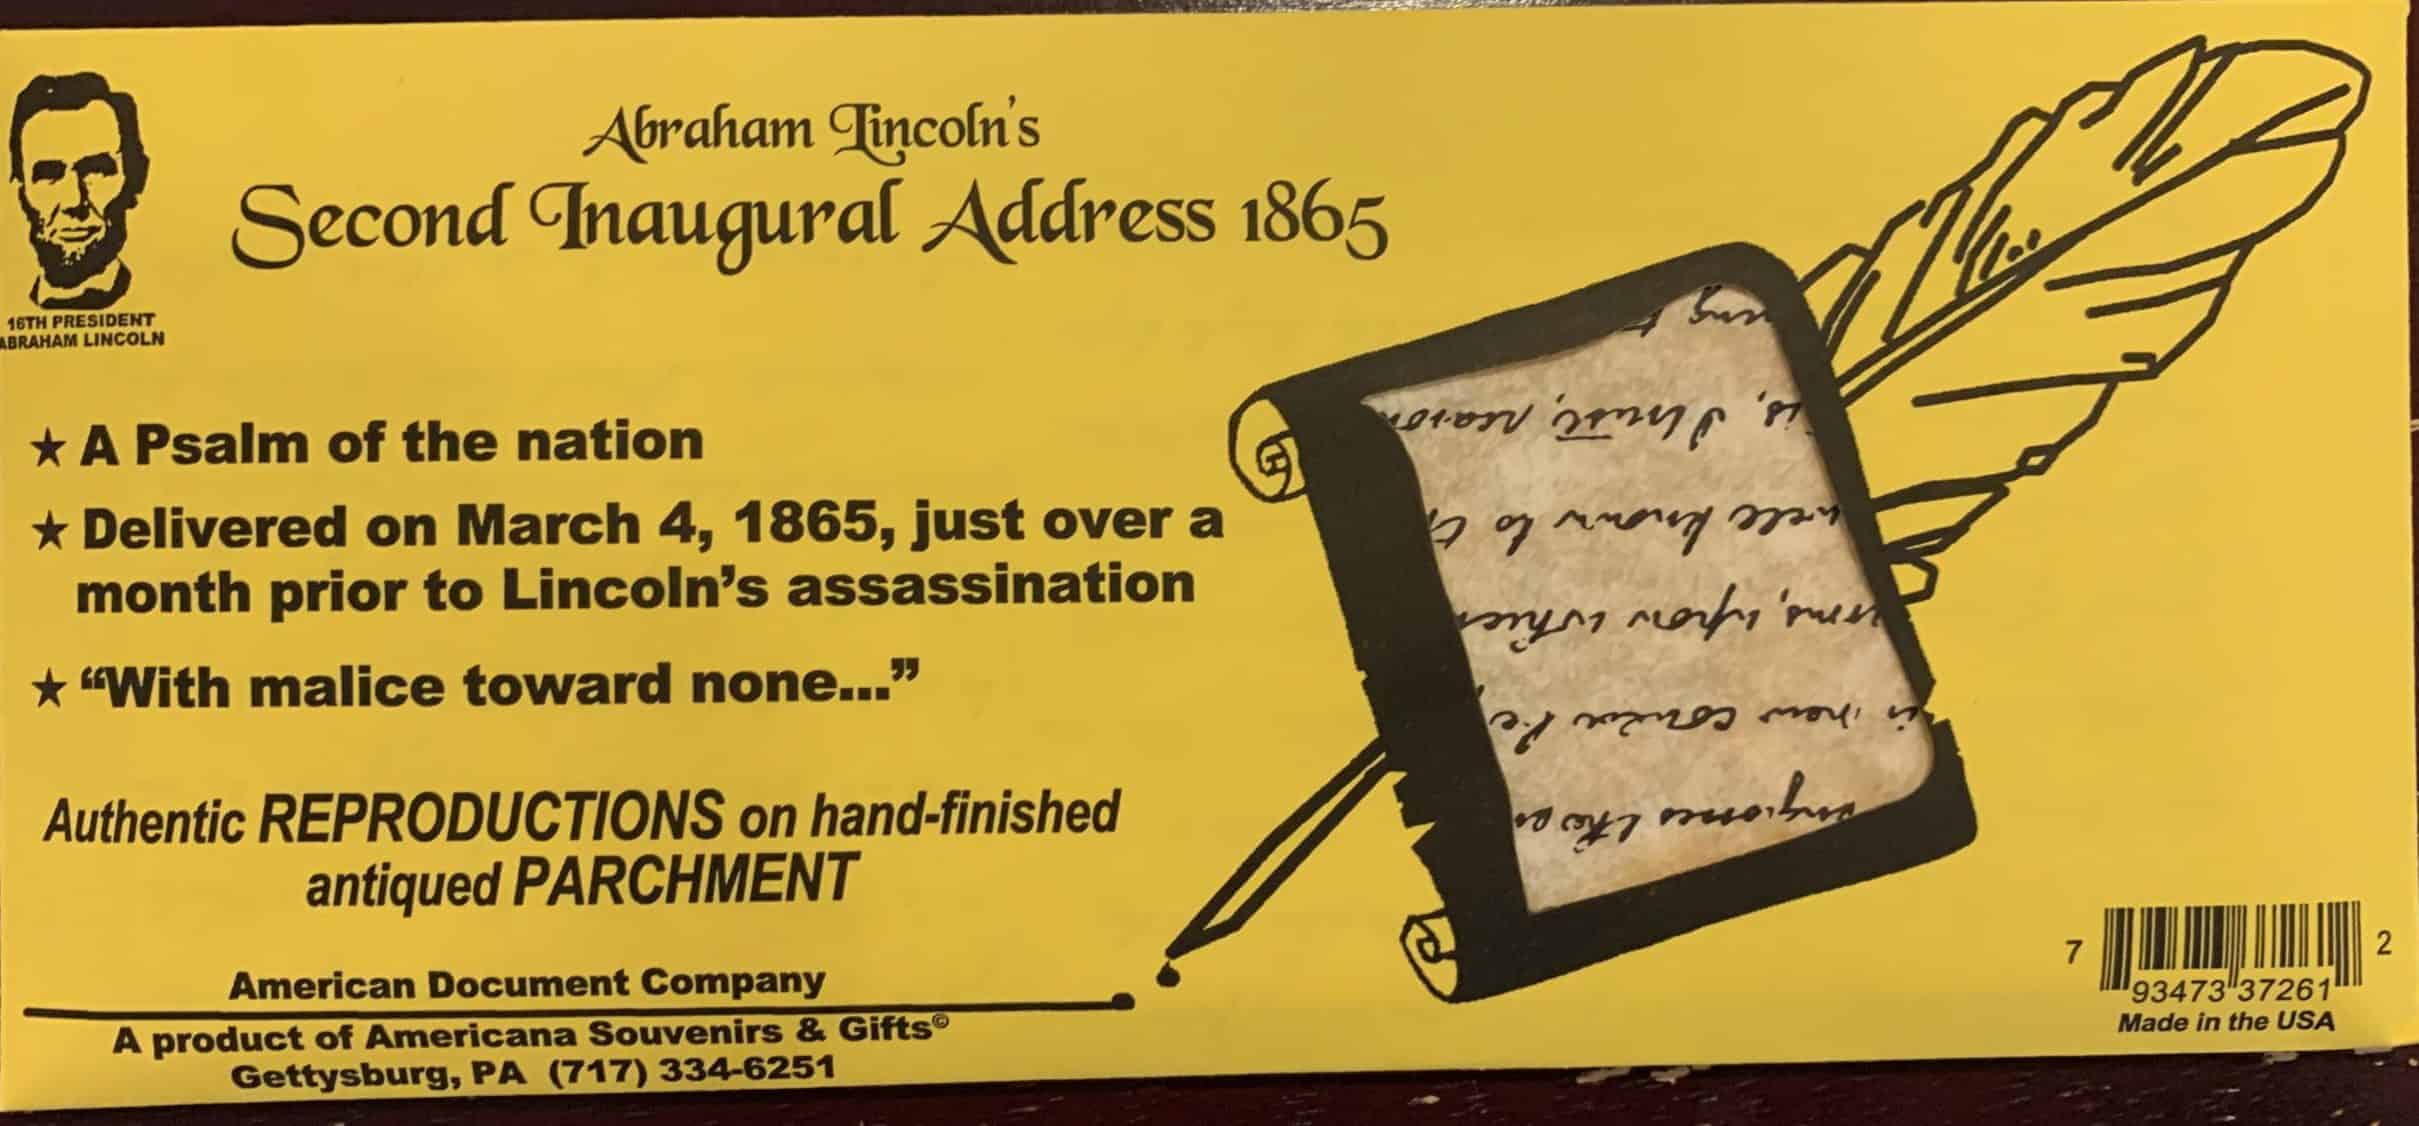 16TH PRESIDENT
ABRAHAM LINCOLN
Abraham Lincoln's
Second Inaugural Address 1865
★ A Psalm of the nation
★ Delivered on March 4, 1865, just over a
month prior to Lincoln’s assassination
★ “With malice toward none...”
Authentic REPRODUCTIONS on hand-finished
antiqued PARCHMENT
American Document Company
A product of Americana Souvenirs & Gifts©
Gettysburg, PA (717) 334-6251
the
is new could be
upon which
well known to
is, I trust, reason
7 93473 37261 2
Made in the USA